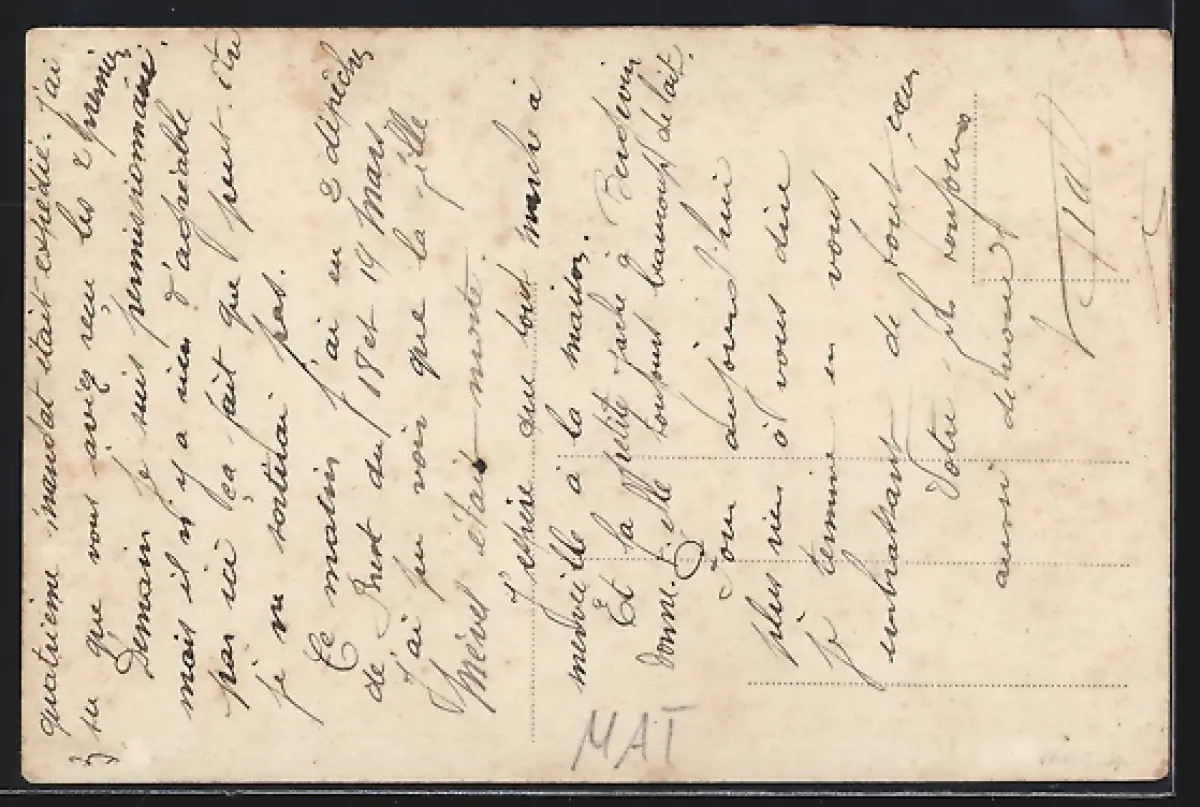 quatrième mandat était expédié. j'ai
su que vous aviez reçu les 2 premiers
Demain je suis permissionnaire.
mais il n'y a rien d'agréable
par ici ça fait que peut-être
je ne sortirai pas.
Ce matin j'ai eu 2 dépêches
de Brest du 18 et 19 mars
J'ai pu voir que la fille
Mével était morte.
J'espère que tout marche à
merveille à la maison.
Et la petite vache à
donne t'elle toujours beaucoup de lait.
Pour aujourd'hui
plus rien à vous dire
je termine en vous
embrassant de tout cœur
Votre fils toujours
MAT